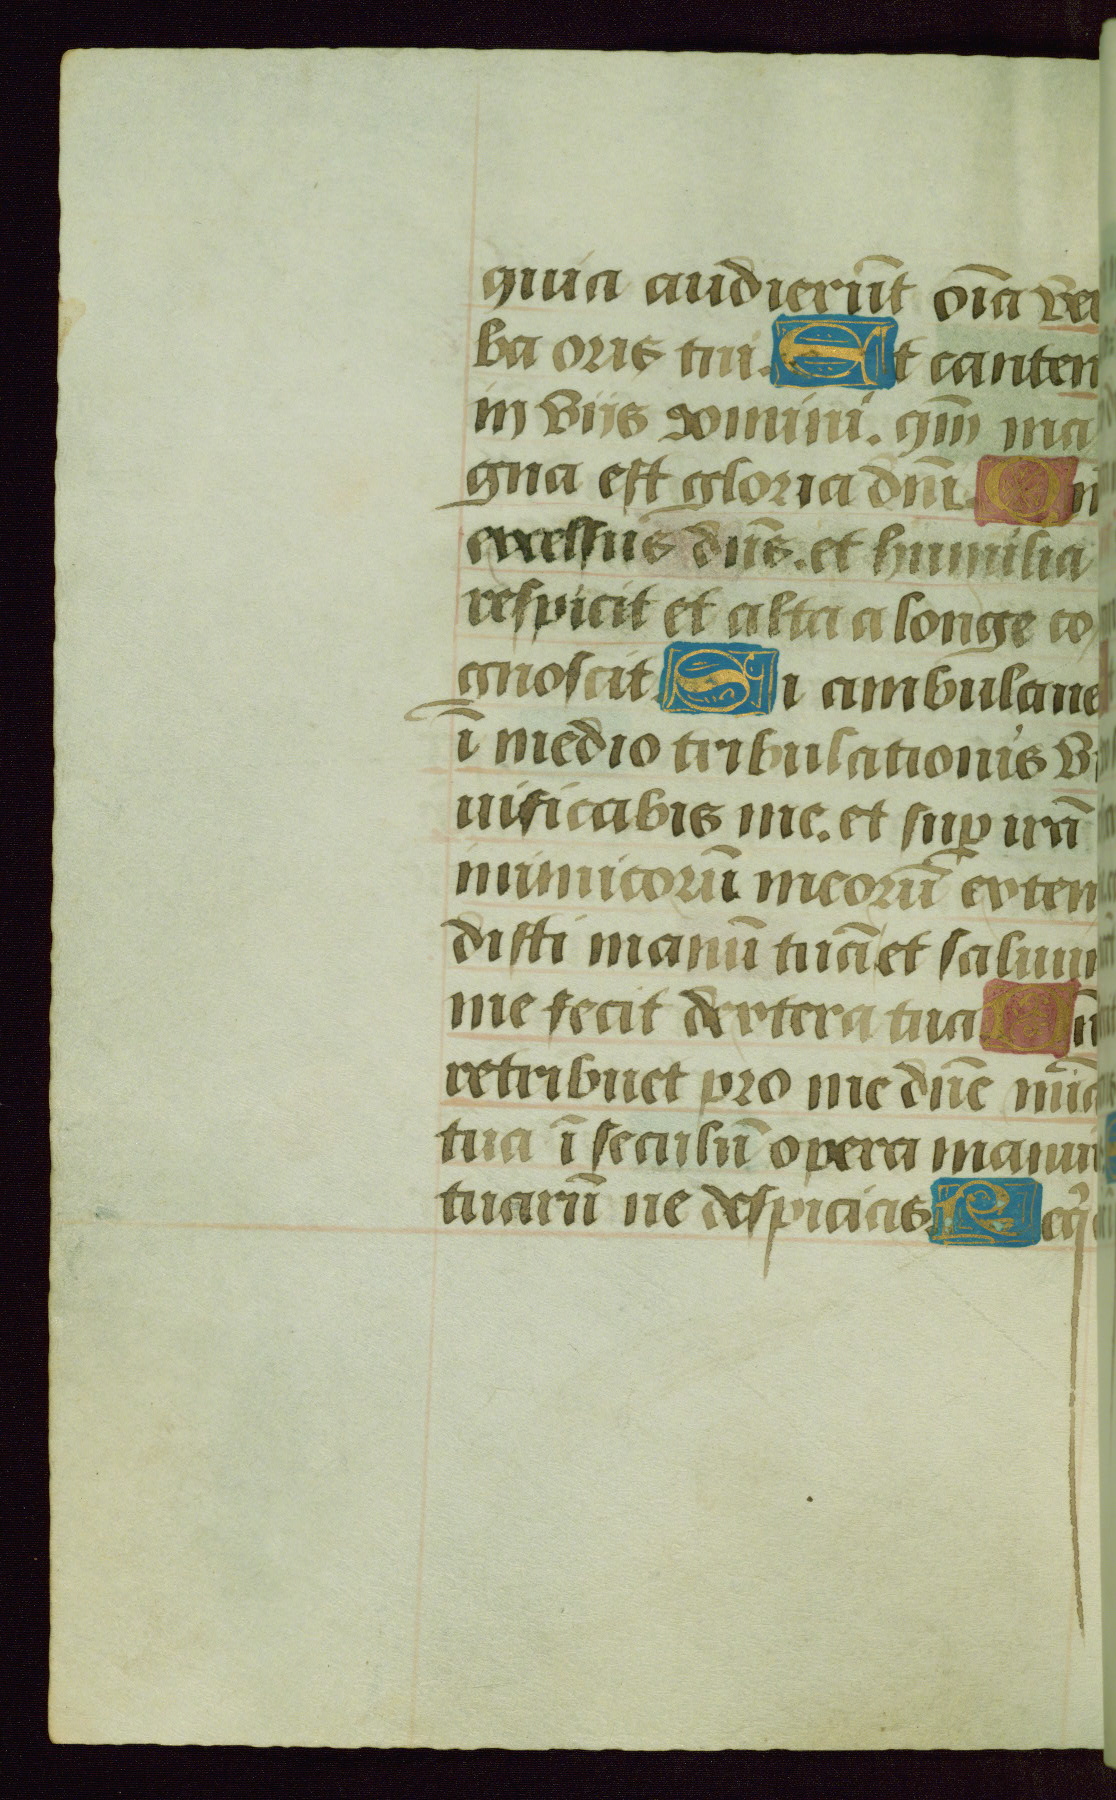 quia audierūt oīa ver
ba oris tui. Et canten
in viis domini. qm̄ ma
gna est gloria dn̄i. Qn̄
excelsus dn̄s. et humilia
respicit et alta a longe co
gnoscit Si ambulaue
ī medio tribulationis vi
uificabis me. et sup irā
inimicorū meorū exten
disti manū tuā et saluum
me fecit dextera tua Dn̄
retribuet pro me dn̄e mīa
tua ī seculū opera manuū
tuarū ne despicias Requ